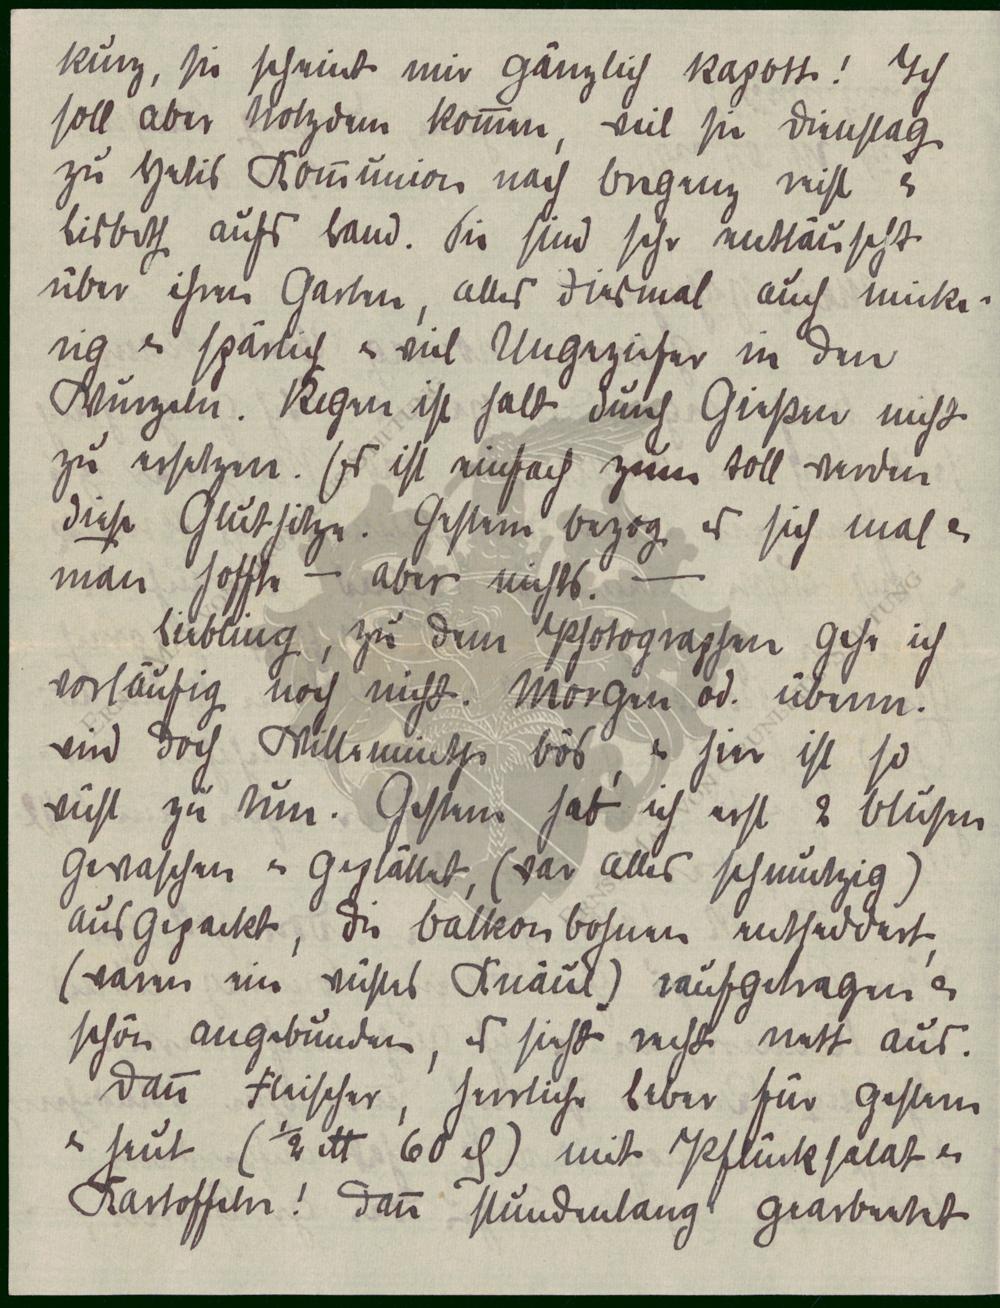 kurz, sie scheint mir gänzlich kapott! Ich
soll aber trotzdem kom̄en, weil sie Dienstag
zu Helis Kom̄union nach Bregenz reist &
Lisbeth aufs Land. Sie sind sehr enttäuscht
über ihren Garten, alles diesmal auch micke-
rig & spärlich & viel Ungeziefer in den
Wurzeln. Regen ist halt durch Gießen nicht
zu ersetzen. Es ist einfach zum toll werden
diese Gluthitze. Gestern bezog es sich mal &
man hoffte — aber nichts. —
Liebling, zu dem Photographen gehe ich
vorläufig noch nicht. Morgen od. überm.
wird doch bös, & hier ist so
viel zu tun. Gestern hab ich erst 2 Blusen
gewaschen & geplättet, (war alles schmutzig)
ausgepackt, die Balkonbohnen entheddert,
(waren ein wüstes Knäul) raufgetragen &
schön angebunden, es sieht recht nett aus.
Dan̄ Fleischer, herrliche Leber für gestern
& heut (½ ℔ 60 ₰) mit Pflücksalat &
Kartoffeln! Dan̄ stundenlang gearbeitet